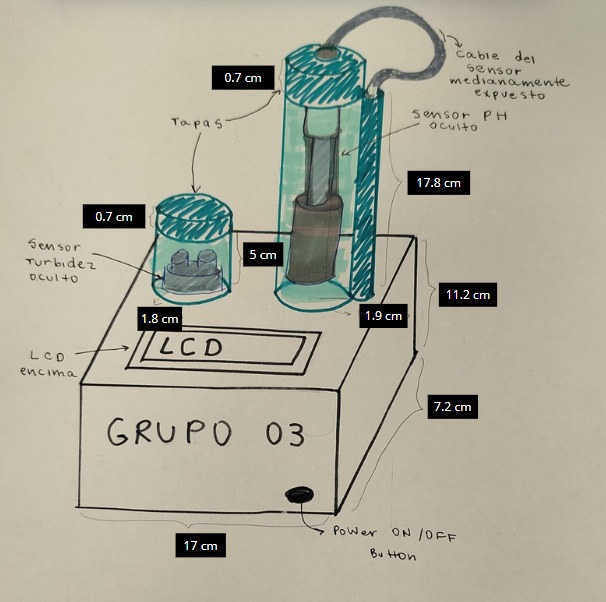 Cable del
sensor
medianamente
expuesto
0.7 cm
Tapas
sensor PH
oculto
17.8 cm
0.7 cm
Sensor
Turbidez
oculto
5 cm
1.8 cm
1.9 cm
11.2 cm
LCD
LCD
encima
7.2 cm
GRUPO 03
Power ON/OFF
Button
17 cm